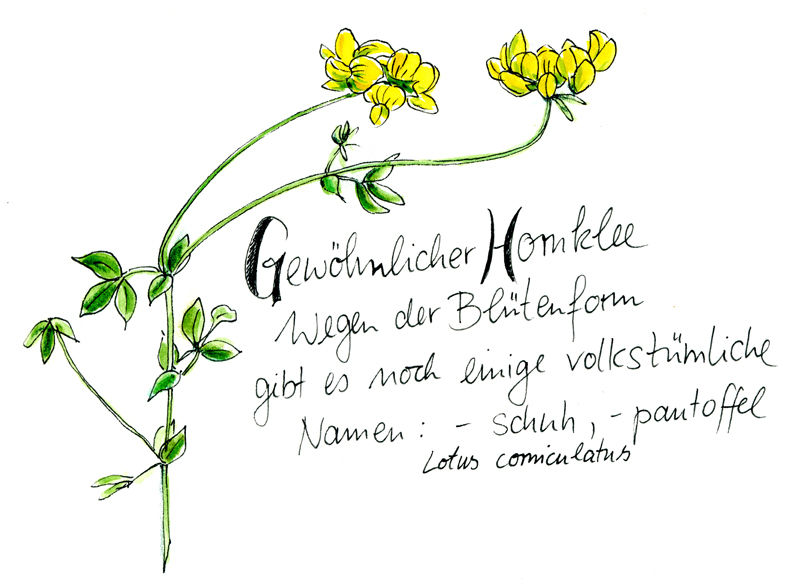 Gewöhnlicher Hornklee
Wegen der Blütenform
gibt es noch einige volkstümliche
Namen: - schuh, - pantoffel
Lotus corniculatus